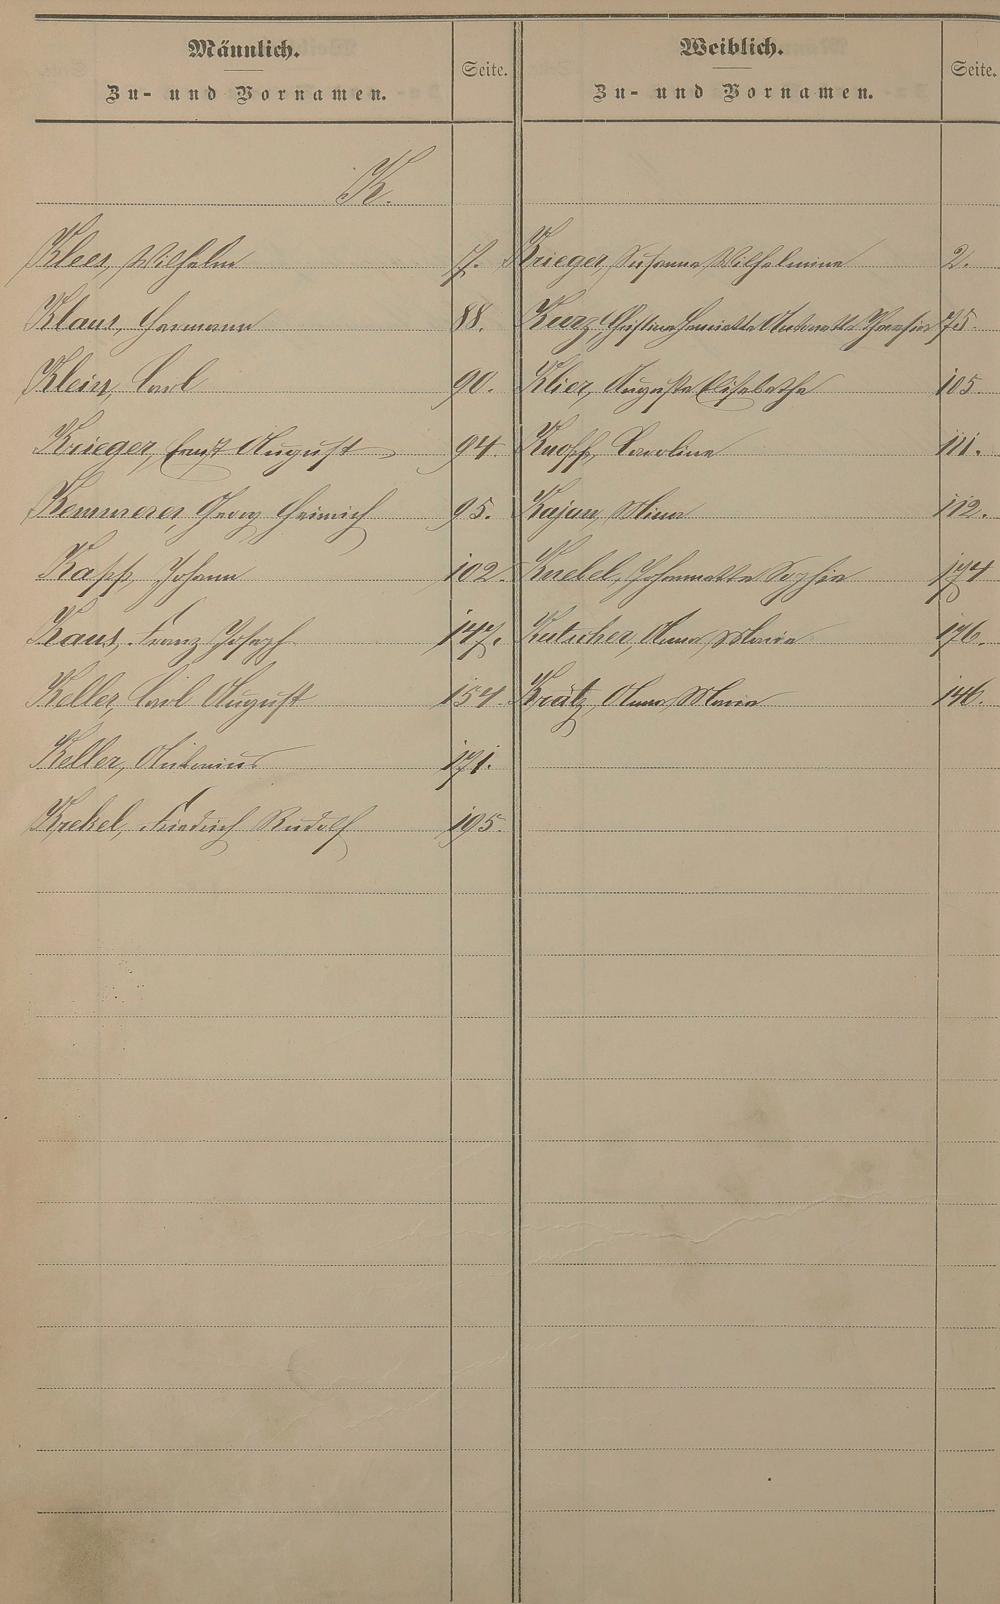 Männlich.
Zu- und Vornamen.
Seite.
Weiblich.
Zu- und Vornamen.
Seite.
K.
Klees, Wilhelm 7.
Krieger, Susanna Wilhelmine 2.
Klaus, Hermann 88.
Kurz, Christina Henriette Antonette Theresia 75.
Klein, Carl 90.
Klier, Auguste Elisabethe 105.
Krieger, Ernst August 94.
Knopf, Caroline 111.
Kemmerer, Georg Heinrich 95.
Kajan, Mina 112.
Kapp, Johann 102.
Knebel, Johannette Sophie 174
Kaus, Franz Joseph 147.
Kutscher, Anna Maria 176.
Keller, Carl August 154.
Krätz, Anna Maria 146.
Keller, Antonius 171.
Krekel, Friedrich Rudolf 195.